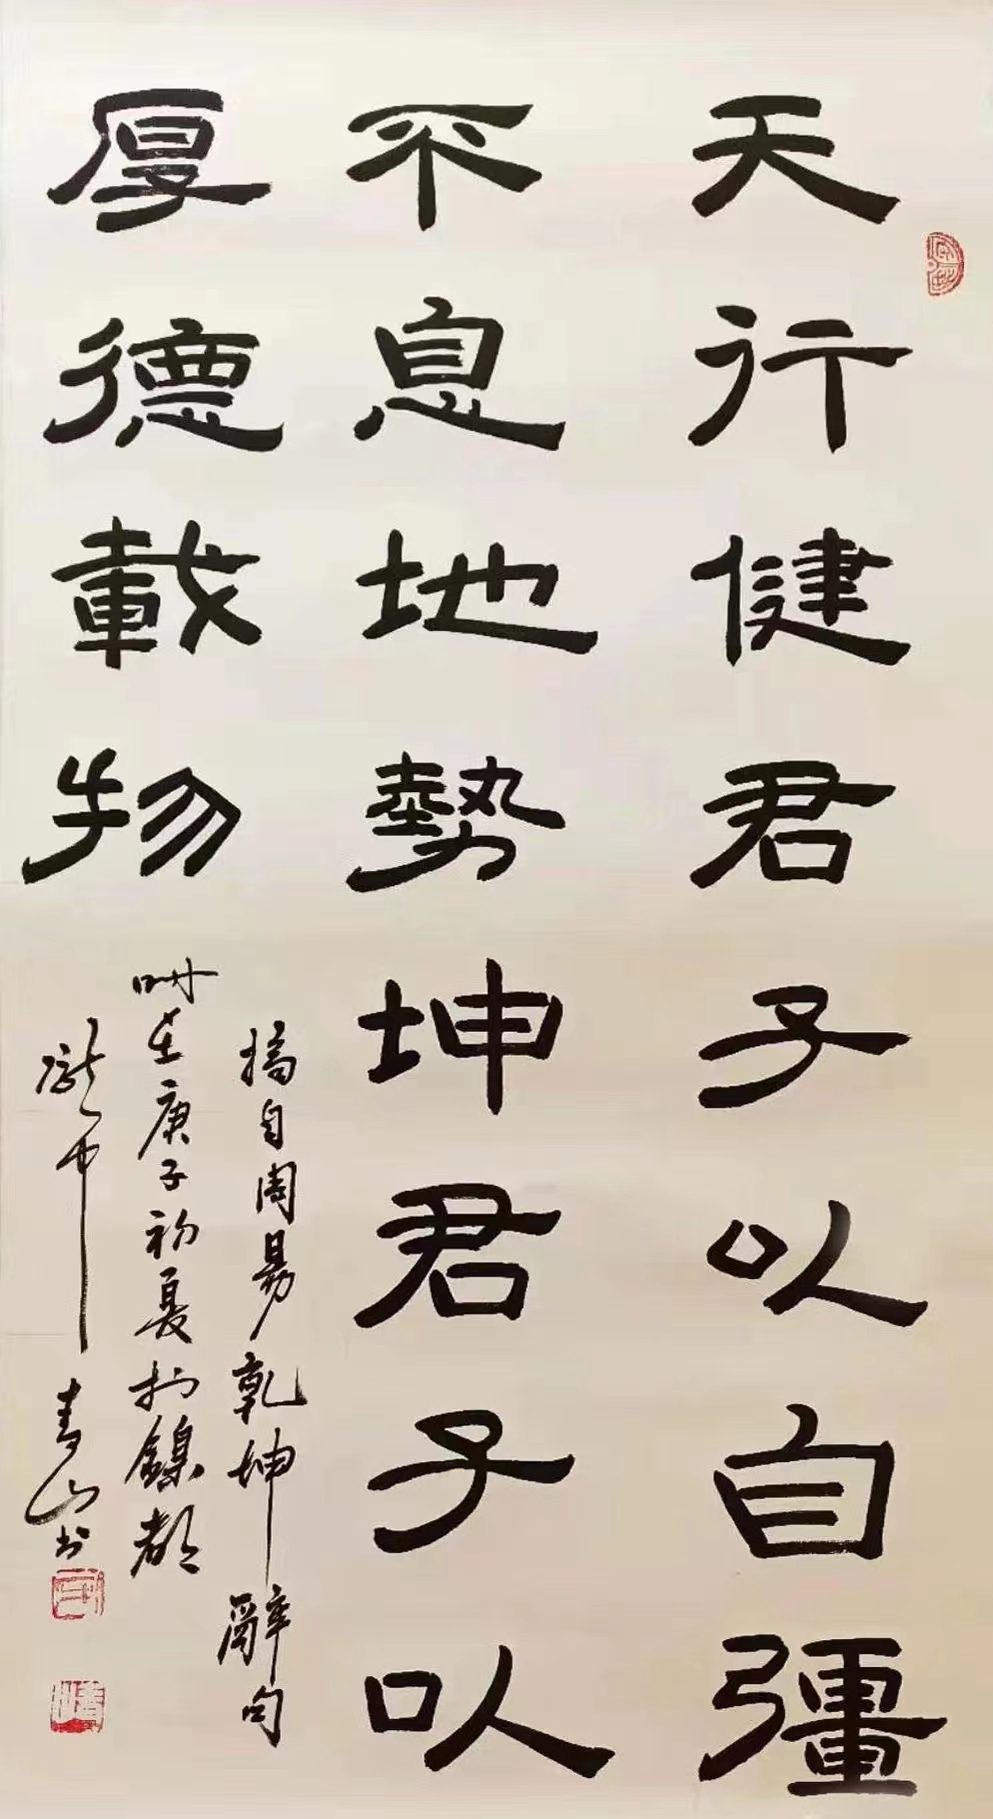 天行健君子以自彊
不息地勢坤君子以
厚德載物
摘自周易乾坤辭句
时在庚子初夏於鎳都
青山书